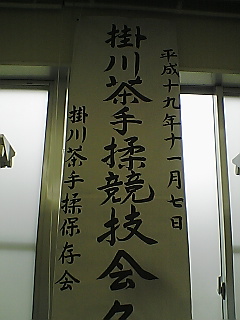 平成十九年十一月七日
掛川茶手揉競技会
掛川茶手揉保存会